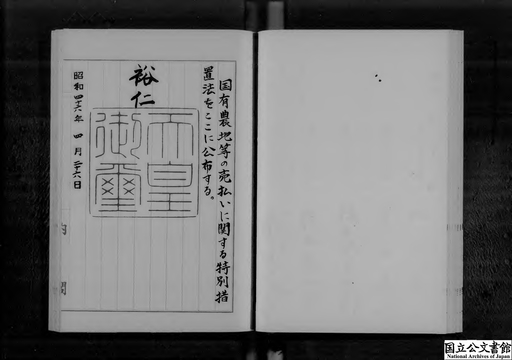 国有農地等の売払いに関する特別措
置法をここに公布する。
裕仁
天皇
御璽
昭和四十六年 四月二十六日
内閣
国立公文書館
National Archives of Japan